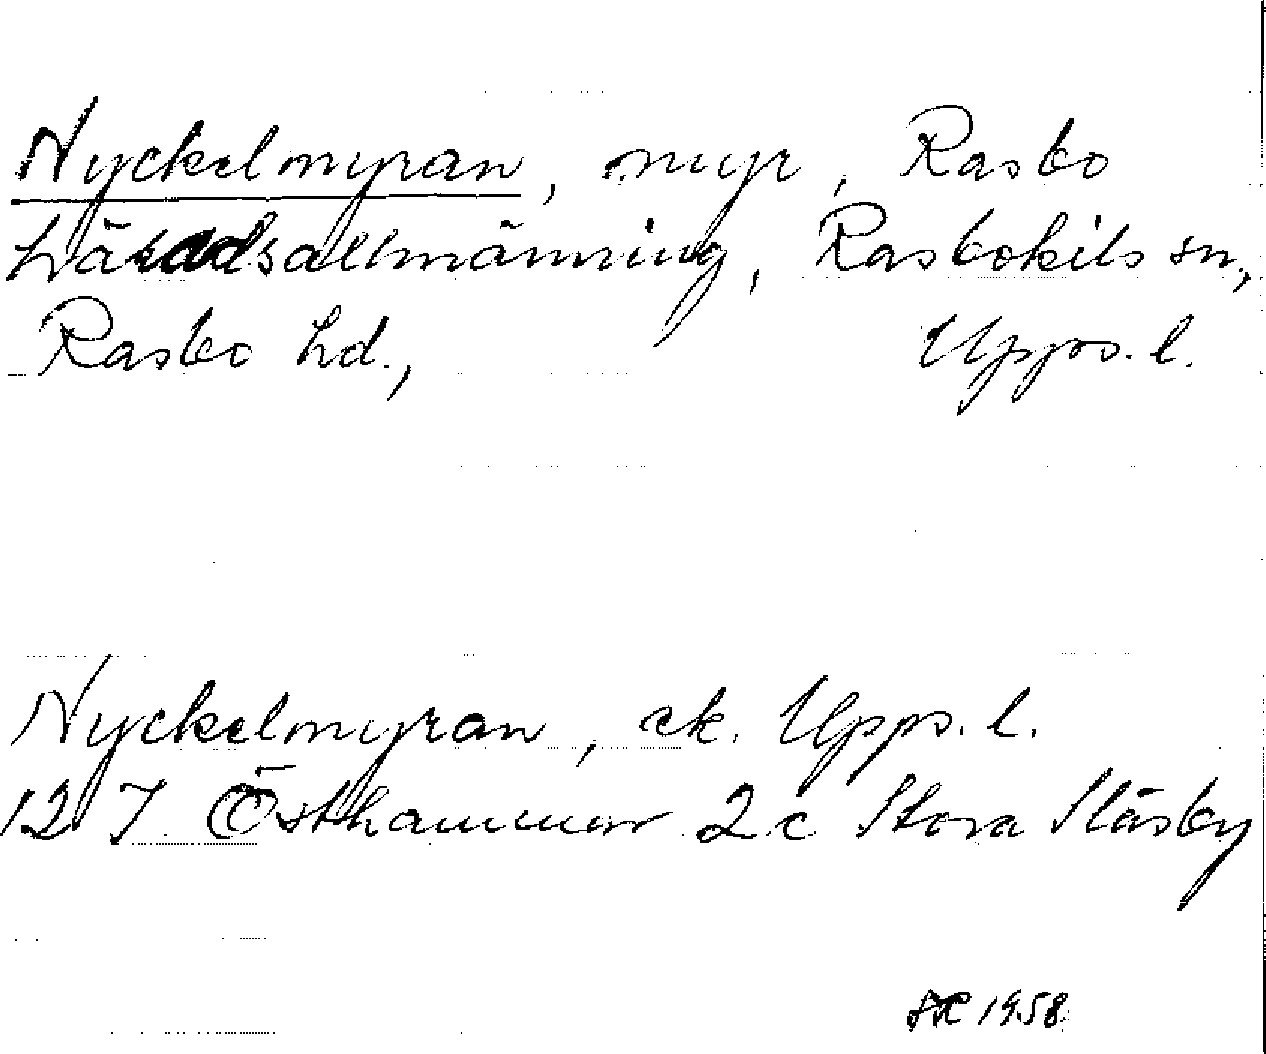 Nyckelmyran, myr, Rasbo
häradsallmänning, Rasbokils sn,
Rasbo hd., Upps. l.
Nyckelmyran, ek. Upps. l.
12 I Östhammar 2 c Stora Slåsby
1958